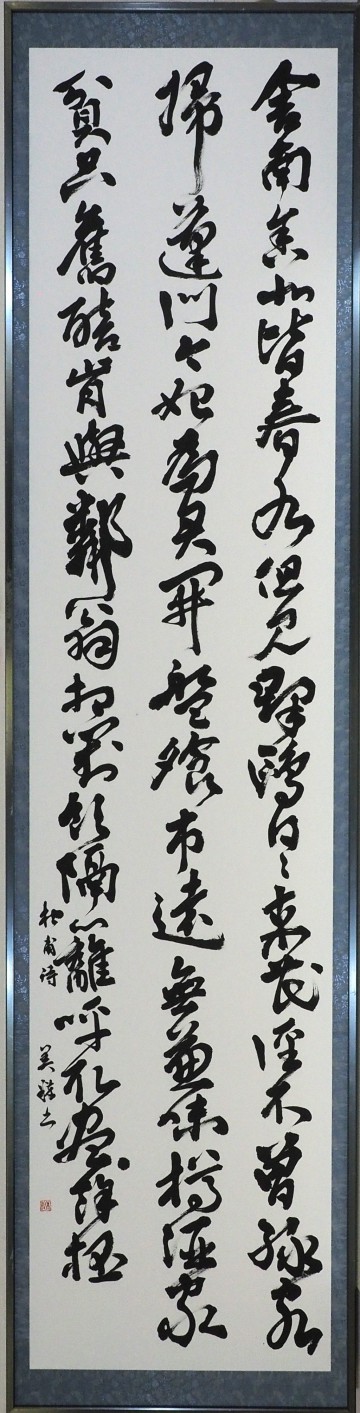 舍南舍北皆春水但見群鷗日〻來花徑不曾緣客
掃蓬門今始為君開盤飧市遠無兼味樽酒家
貧只舊醅肯與鄰翁相對飲隔籬呼取盡餘杯
杜甫詩